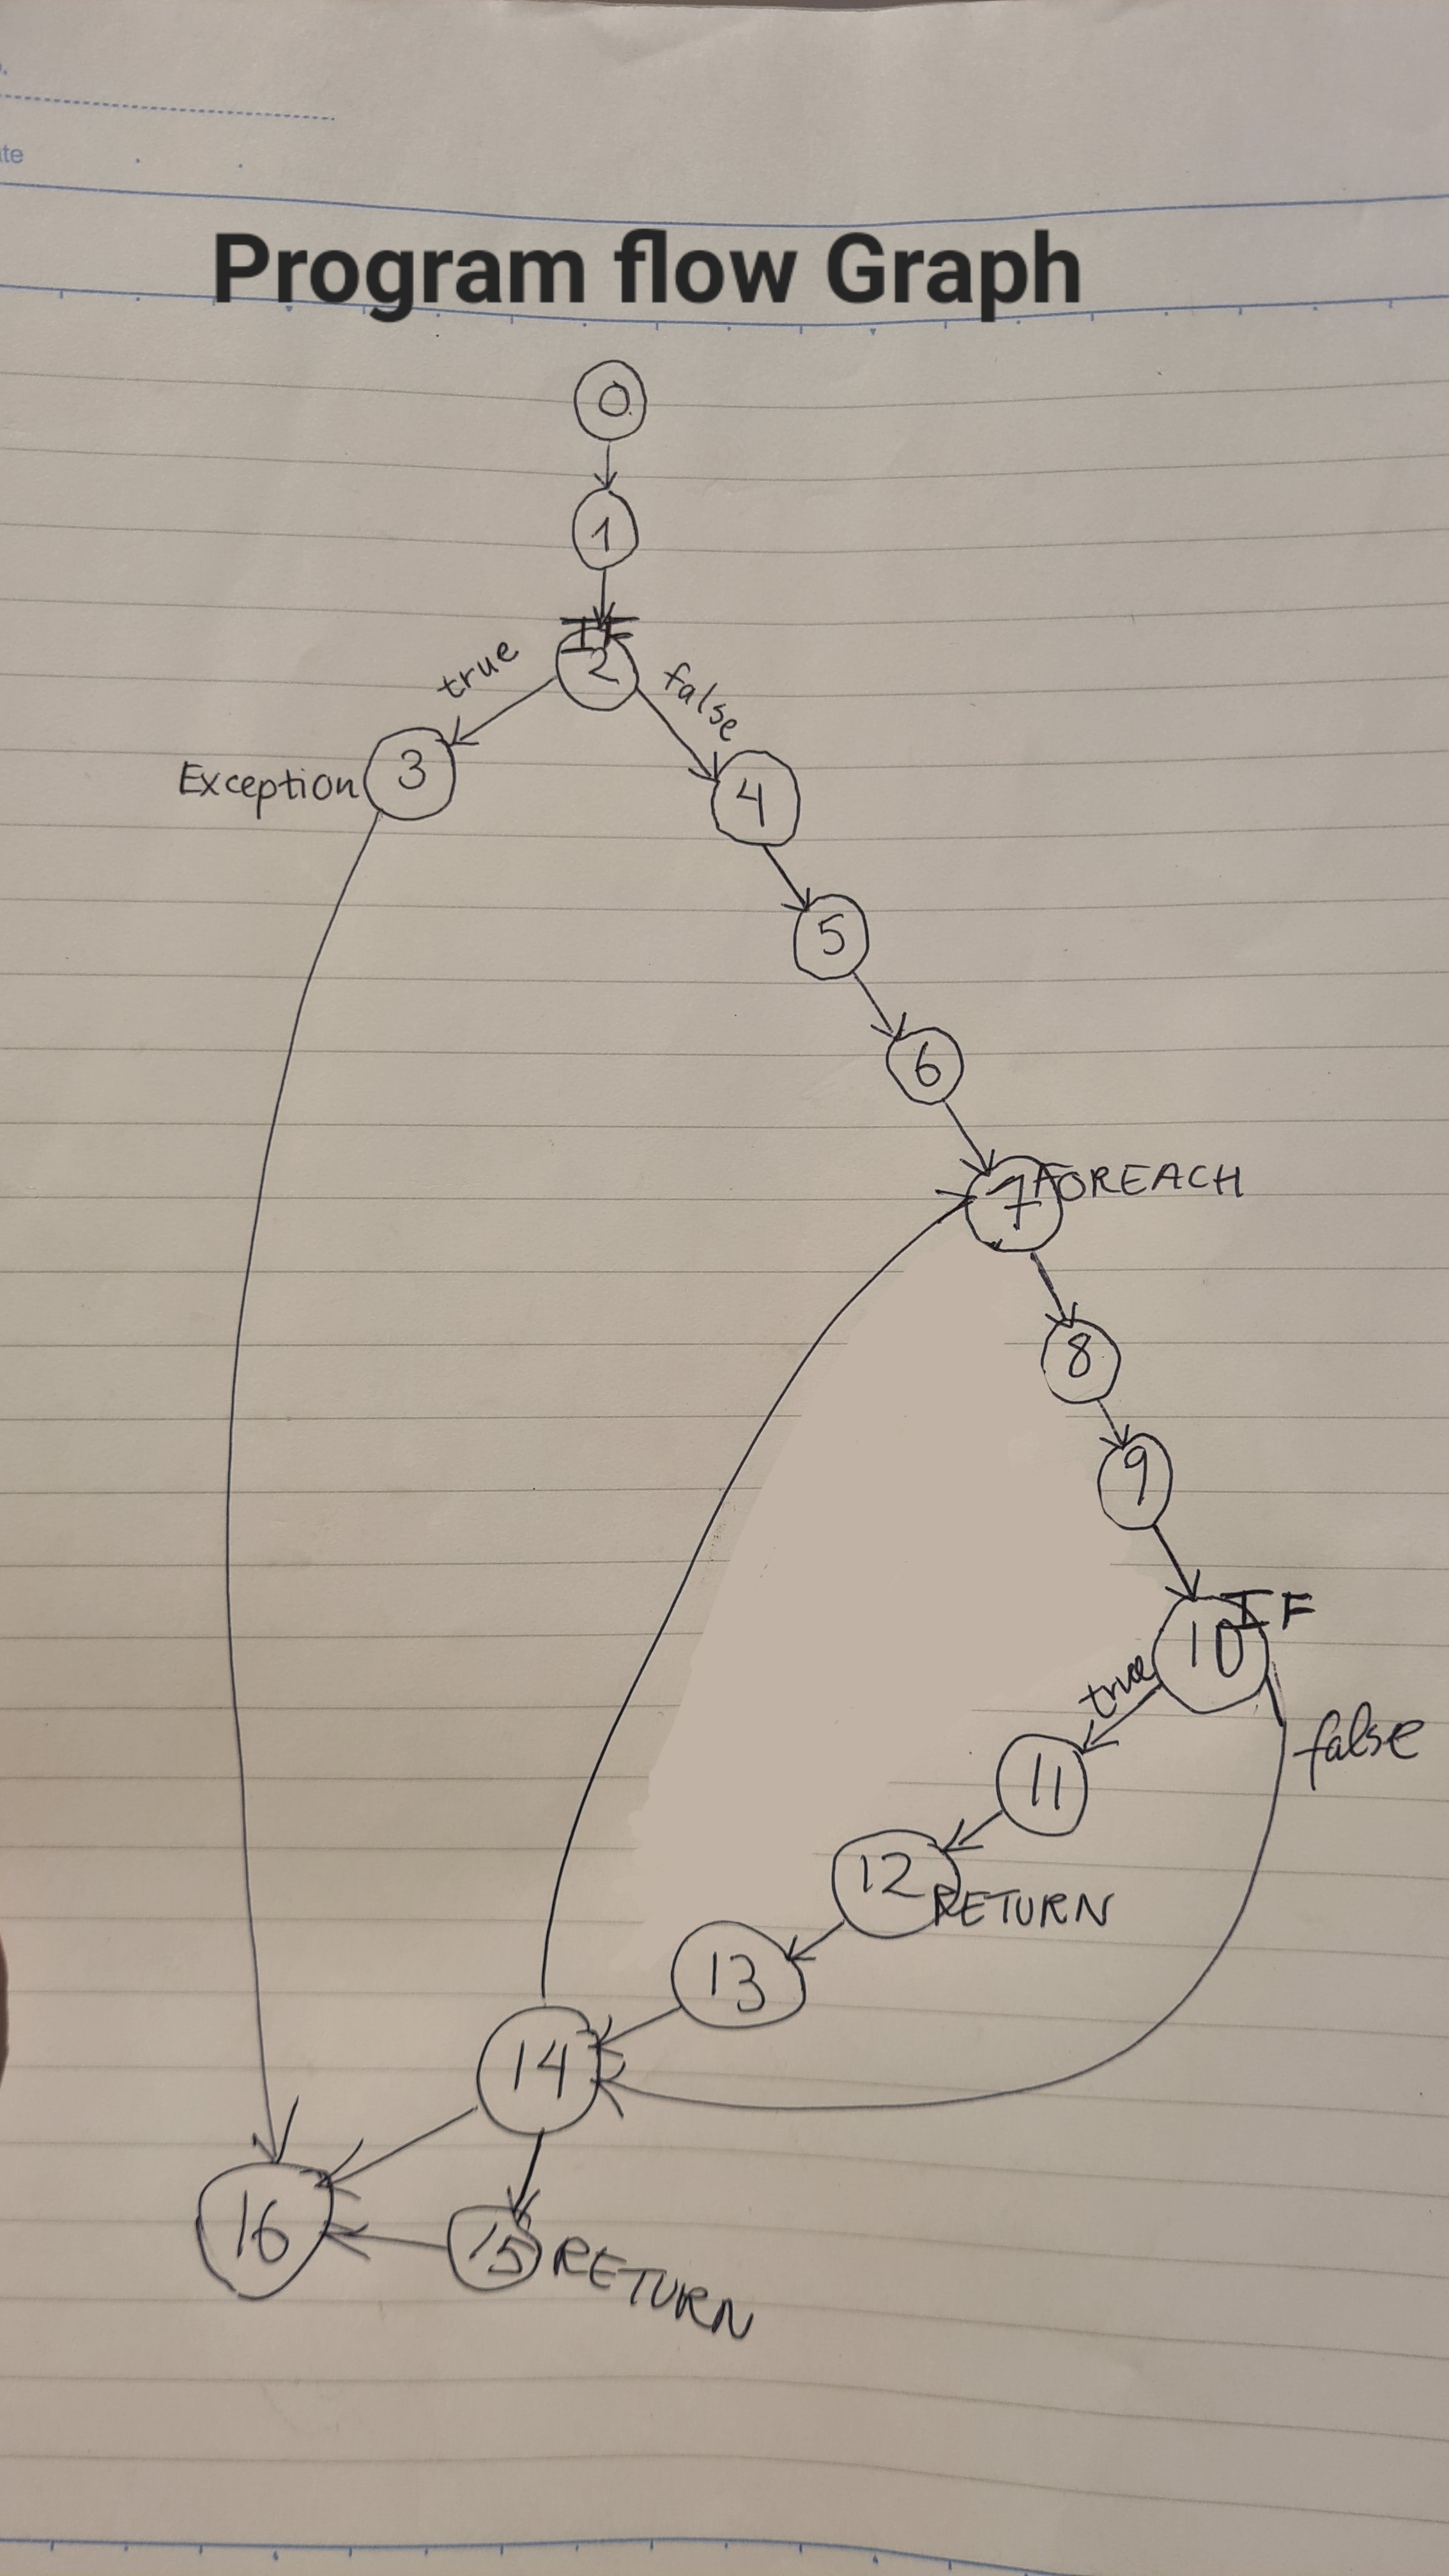 ate
Program flow Graph
0
1
IF
2
true
false
3
Exception
4
5
6
7
FOREACH
8
9
IF
10
true
false
11
12
RETURN
13
14
16
15
RETURN